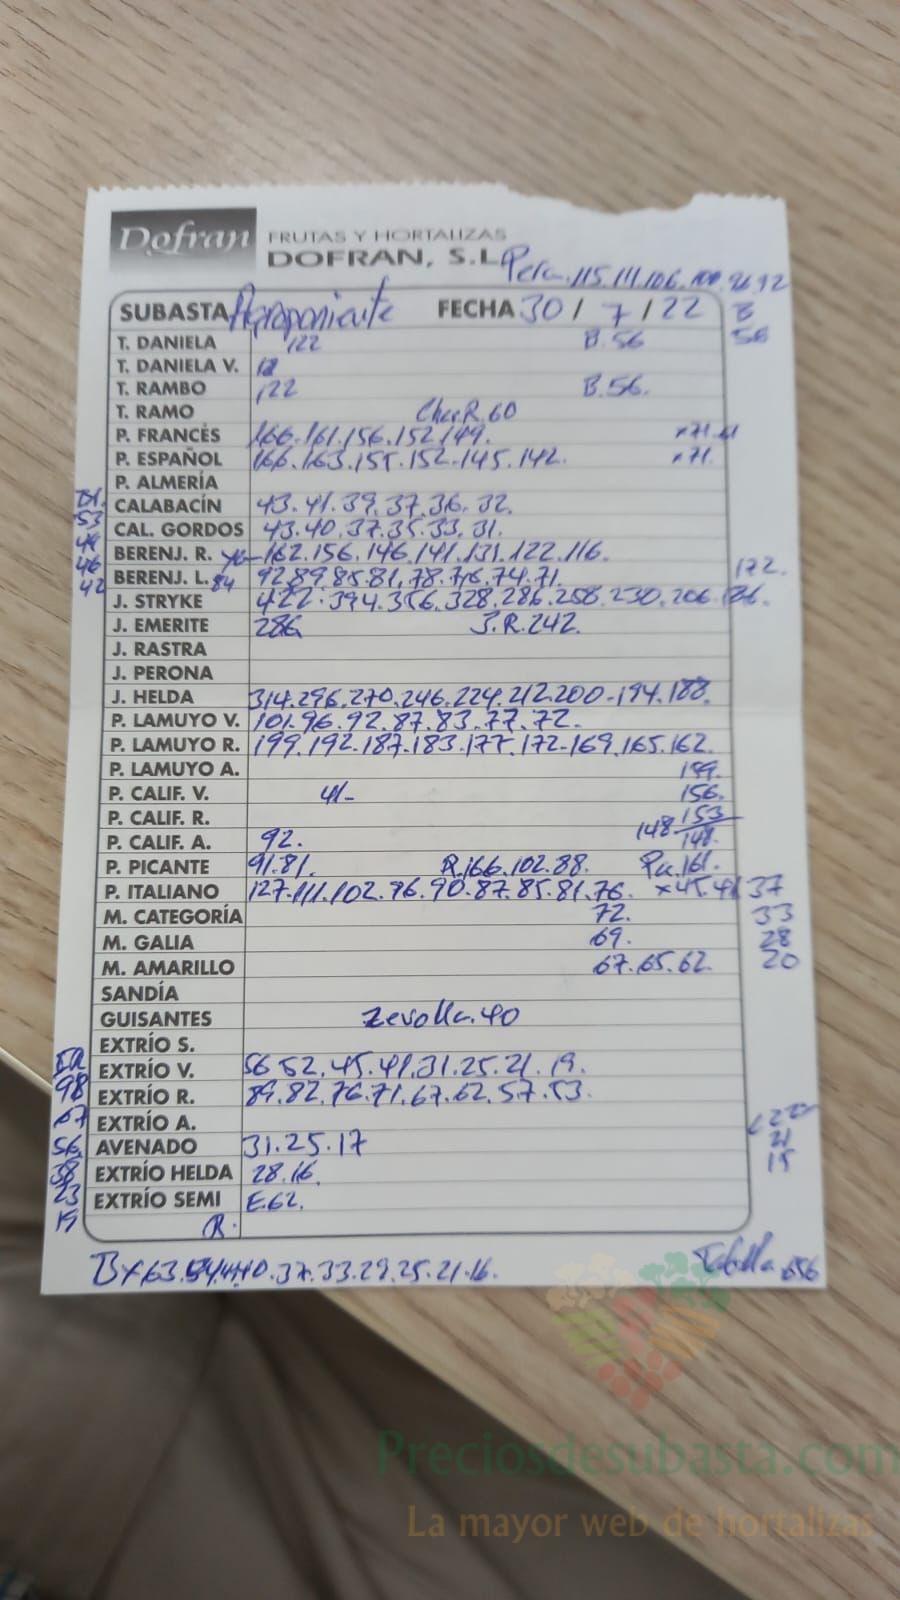 Dofran FRUTAS Y HORTALIZAS
DOFRAN, S.L. Pera.115.111.106.100.96.92
SUBASTA Agroponiente FECHA 30 / 7 / 22 B
T. DANIELA 122 B.56 56
T. DANIELA V.
T. RAMBO 122 B.56.
T. RAMO R.60
P. FRANCÉS 166.161.156.152.149. x71.
P. ESPAÑOL 166.163.155.152.145.142. x71.
P. ALMERÍA
CALABACÍN 43.41.39.37.36.32.
53 CAL. GORDOS 43.40.37.35.33.31.
49 BERENJ. R. 162.156.146.141.131.122.116.
46 BERENJ. L. 84 92.89.85.81.78.76.74.71. 172.
42 J. STRYKE 422.394.356.328.286.258.230.206.186.
J. EMERITE 286 J.R.242.
J. RASTRA
J. PERONA
J. HELDA 314.296.270.246.224.212.200-194.188.
P. LAMUYO V. 101.96.92.87.83.77.72.
P. LAMUYO R. 199.192.187.183.177.172-169.165.162.
P. LAMUYO A. 199.
P. CALIF. V. 41- 156.
P. CALIF. R. 153
P. CALIF. A. 92. 148 148.
P. PICANTE 91.81. R.166.102.88. 161.
P. ITALIANO 127.111.102.96.90.87.85.81.76. x45.41 37
M. CATEGORÍA 72. 33
M. GALIA 69. 28
M. AMARILLO 67.65.62. 20
SANDÍA
GUISANTES Zevolla.40
EXTRÍO S.
EXTRÍO V. 56 52.45.41.31.25.21.19.
98 EXTRÍO R. 89.82.76.71.67.62.57.53.
67 EXTRÍO A.
56 AVENADO 31.25.17 21
38 EXTRÍO HELDA 28.16. 15
23 EXTRÍO SEMI E.62.
19 R.
Bx63.54.44.40.37.33.29.25.21.16. 656
Preciosdesubasta.com
La mayor web de hortalizas